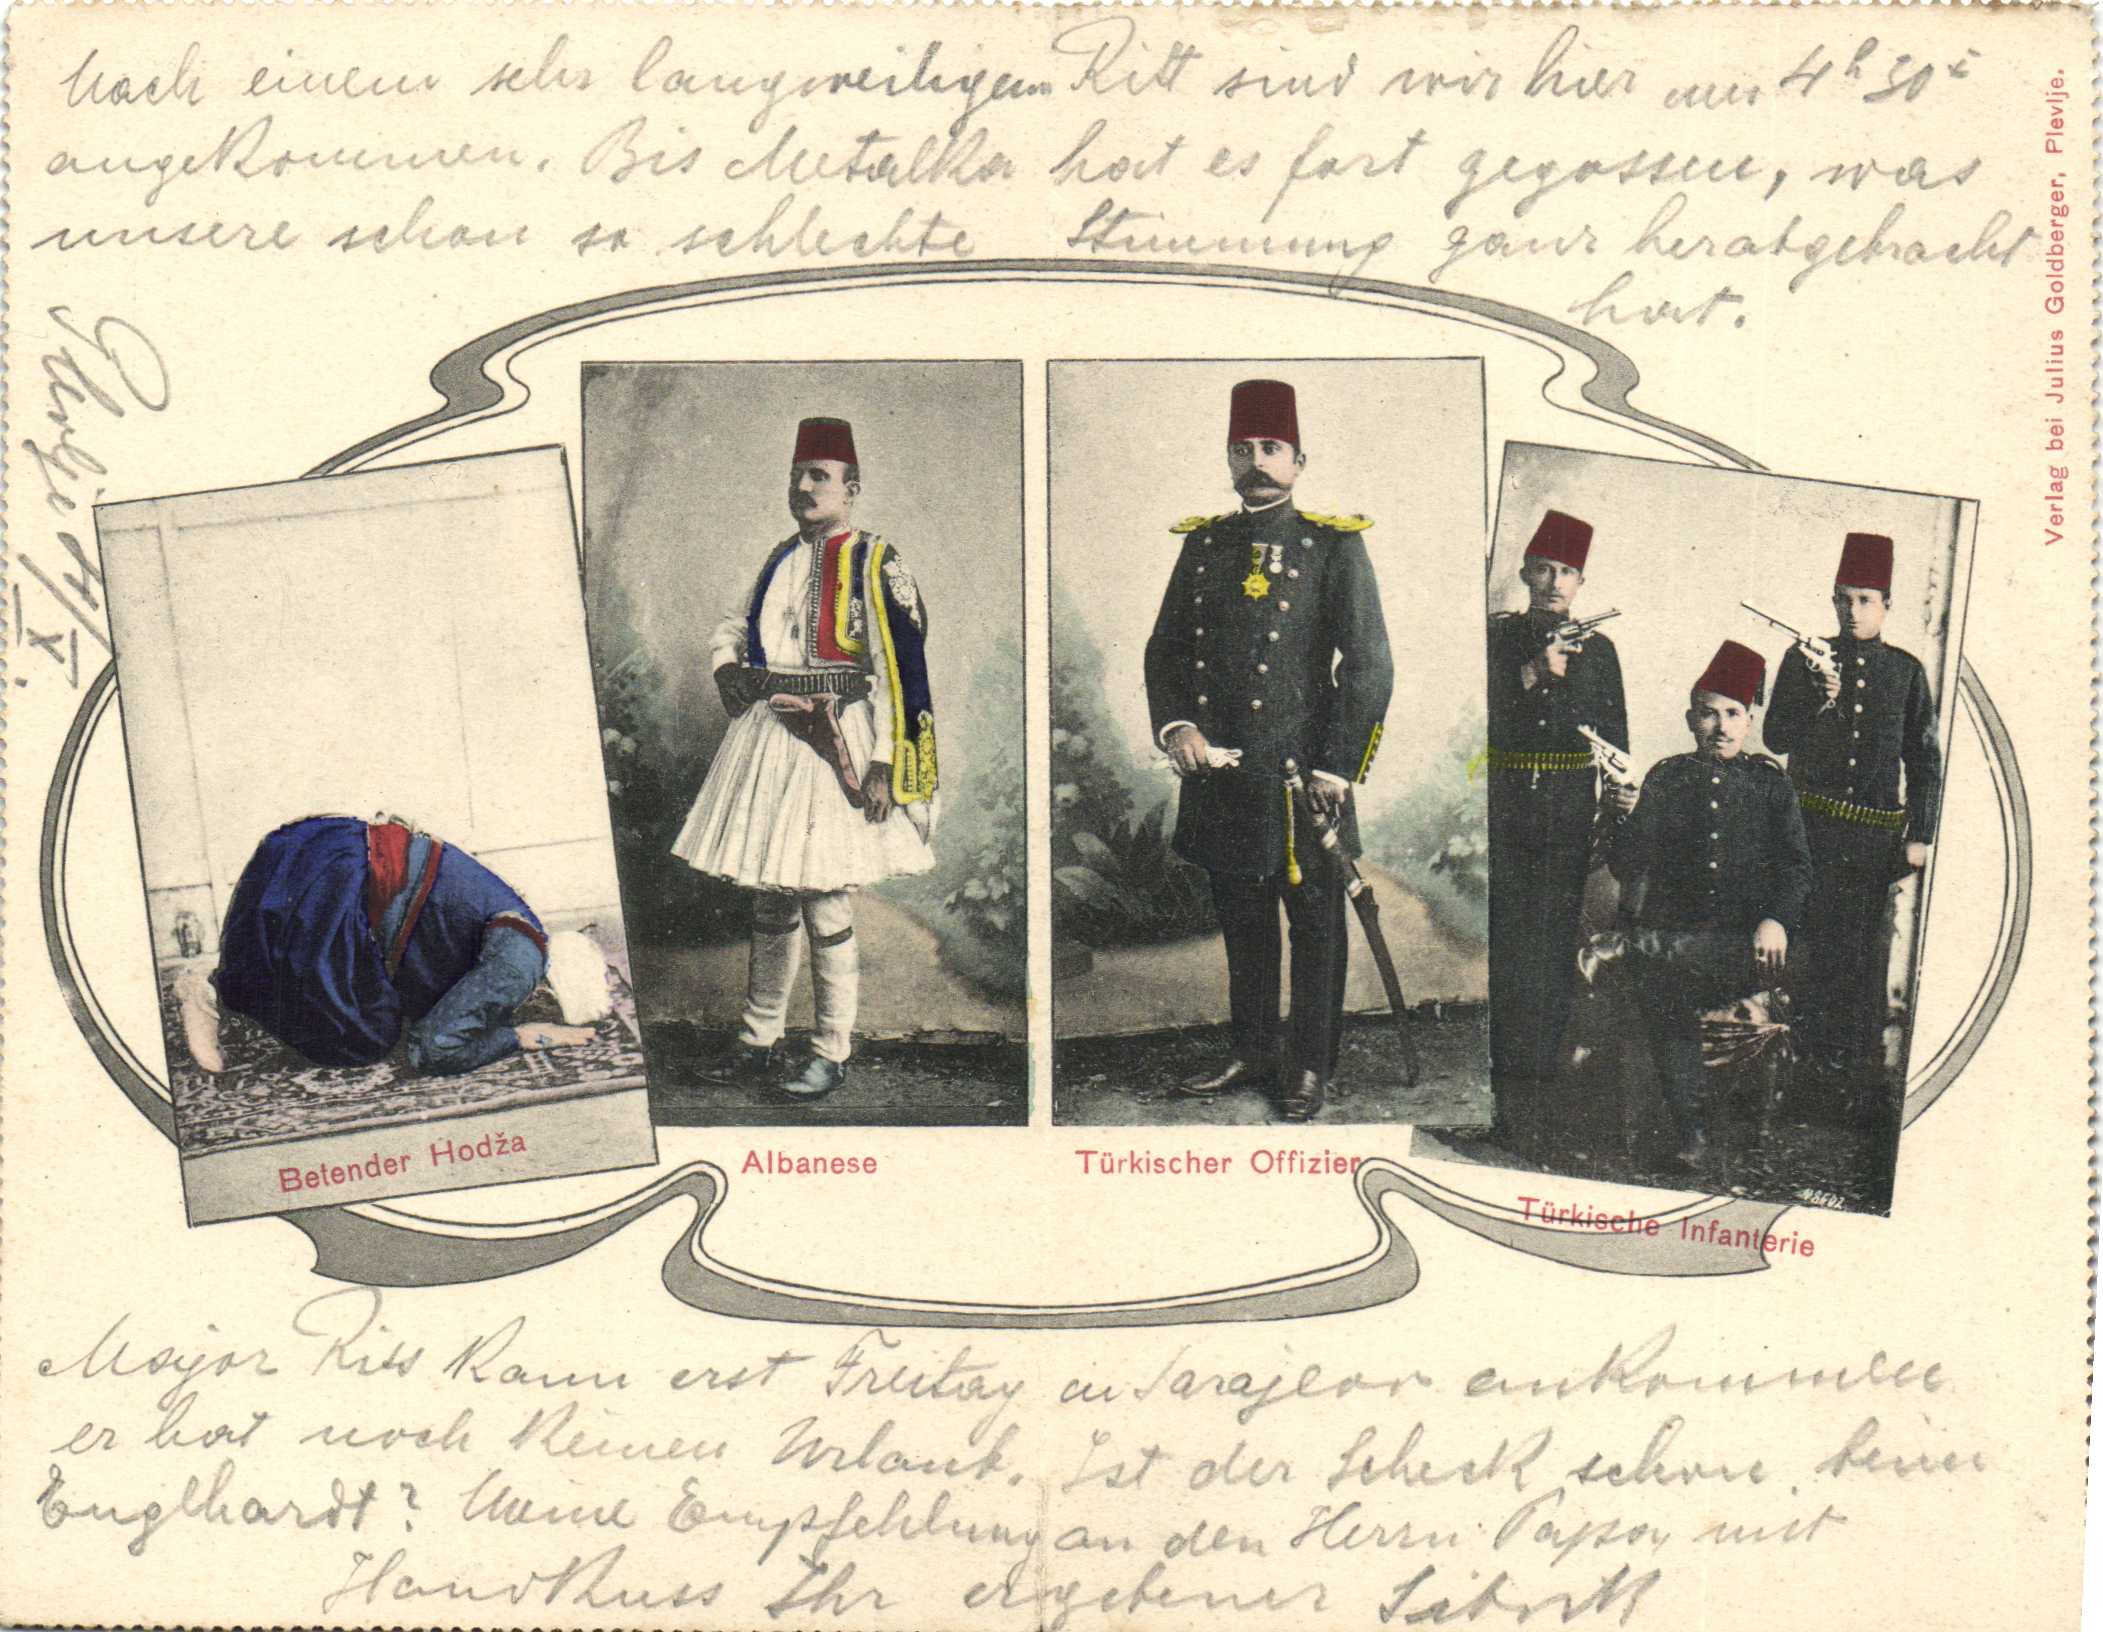 Nach einem sehr langweiligen Ritt sind wir hier um 4h 30
angekommen. Bis Metalka hat es fort gegossen, was
unsere schon so schlechte Stimmung ganz herabgebracht
hat.
Plevlje 4/X.
Verlag bei Julius Goldberger, Plevlje.
Betender Hodža
Albanese
Türkischer Offizier
Türkische Infanterie
Major Riss kann erst Freitag in Sarajevo ankommen
er hat noch keinen Urlaub. Ist der Scheck schon beim
Englhardt? Meine Empfehlung an den Herrn Papa, mit
Handkuss Ihr ergebener